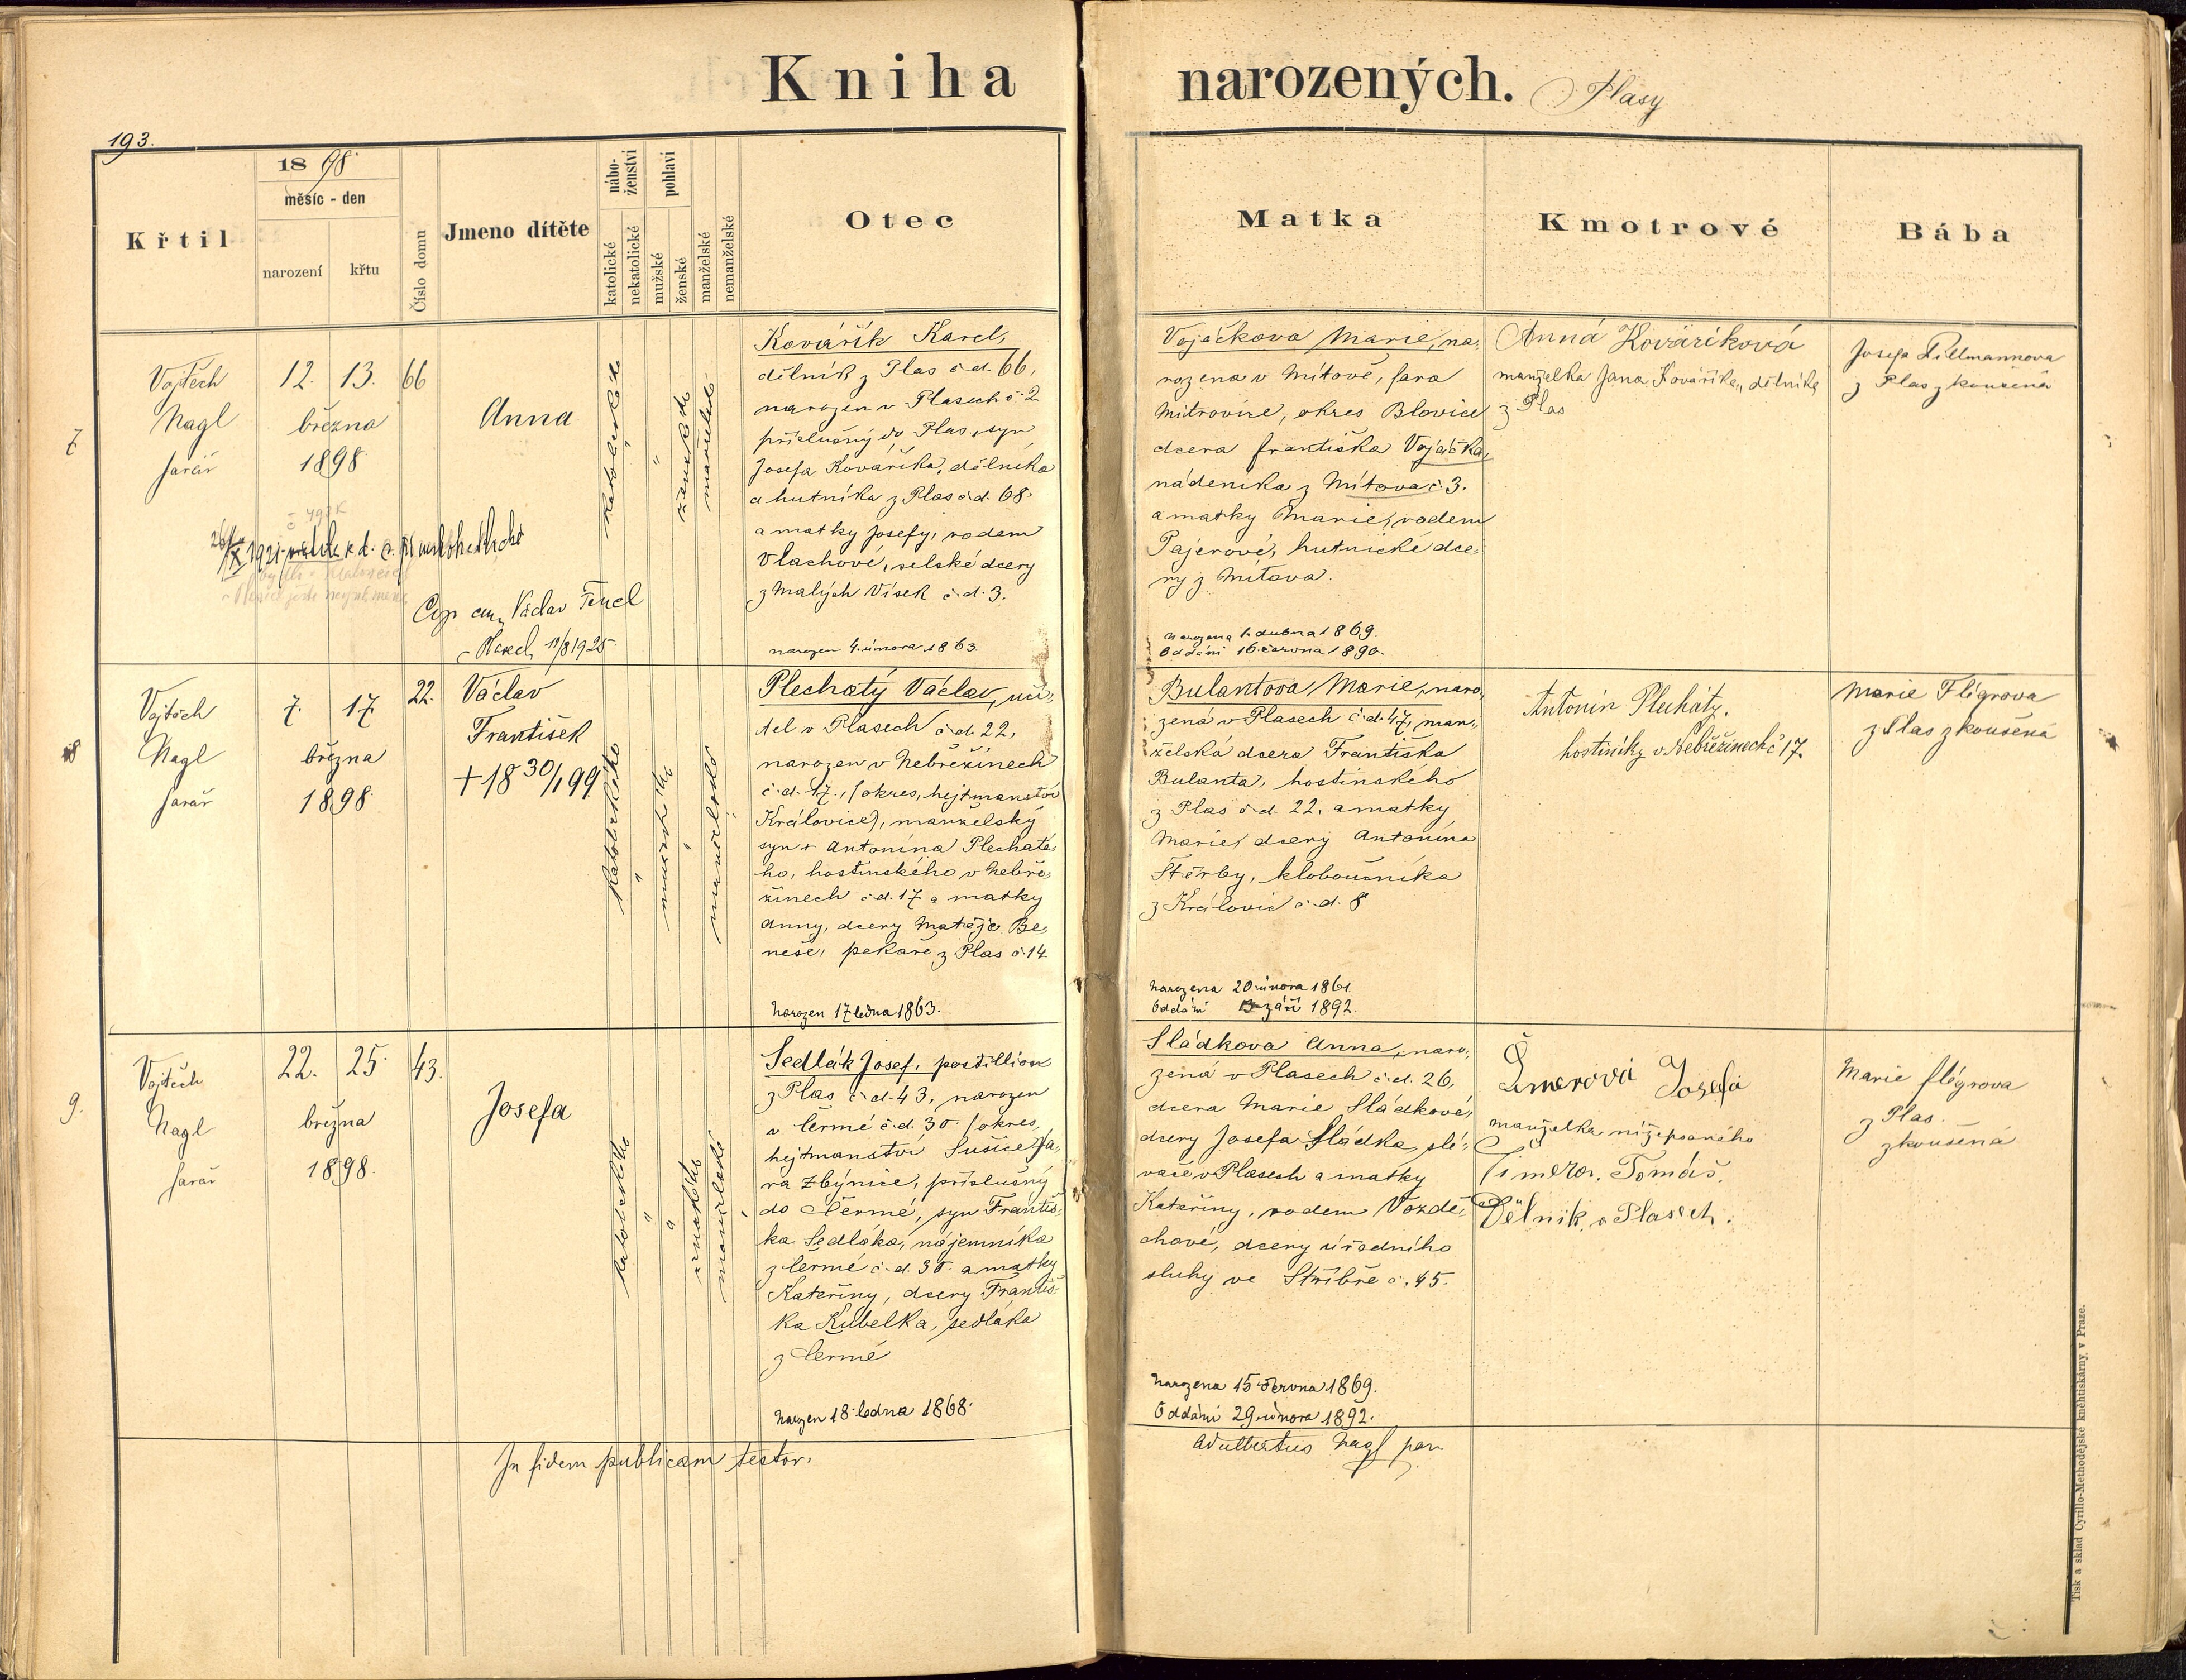 Kniha narozených. Plasy
193.
Křtil
1898
měsíc - den
narození
křtu
Číslo domu
Jmeno dítěte
nábo-
ženství
katolické
nekatolické
pohlaví
mužské
ženské
manželské
nemanželské
Otec
Matka
Kmotrové
Bába
7
Vojtěch
Nagl
farář
12. 13.
března
1898
66
Anna
katolické
ženské
manželské
Cop cum Václav Fencl
Plasech 11/8 1925
Kovářík Karel,
dělník z Plas č.d. 66,
narozen v Plasech č. 2
příslušný do Plas, syn
Josefa Kováříka, dělníka
a hutníka z Plas č.d. 68.
a matky Josefy, rodem
Vlachové, selské dcery
z Malých Vísek č.d. 3.
narozen 4. února 1863.
Vojáčkova Marie, na-
rozena v Mítově, fara
Mitrovice, okres Blovice
dcera Františka Vojáčka,
nádeníka z Mítova č. 3.
a matky Marie, rodem
Pajerové, hutnické dce-
ry z Mítova.
narozena 1. dubna 1869.
Oddáni 16. června 1890.
Anná Kováríková
manželka Jana Kováříka, dělníka
z Plas
Josefa
z Plas zkoušená
8
Vojtěch
Nagl
farář
7. 17.
března
1898
22.
Václav
František
+ 18 30/1 99
katolické
mužské
manželské
Plechatý Václav, uči-
tel v Plasech č.d. 22,
narozen v Nebřežinech
č.d. 17., (okres, hejtmanství
Královice), manželský
syn + Antonína Plechaté-
ho, hostinského v Nebře-
žinech č.d. 17 a matky
Anny, dcery Matěje Be-
neše, pekaře z Plas č. 14
Narozen 17 ledna 1863.
Bulantova Marie, naro-
zená v Plasech č.d. 47, man-
želská dcera Františka
Bulanta, hostinského
z Plas č.d. 22, a matky
Marie, dcery Antonína
Štěrby, kloboučníka
z Královic č.d. 8
Narozena 20. února 1861.
Oddáni září 1892.
Antonín Plecháty,
hostinský v Nebřežinech č 17.
Marie Flégrova
z Plas zkoušená
9.
Vojtěch
Nagl
farář
22. 25
března
1898.
43.
Josefa
katolické
ženské
manželské
Sedlák Josef, postillion
z Plas č.d. 43, narozen
v Čermé č.d. 30. (okres,
hejtmanství Sušice, fa-
ra Zbýnice, příslušný
do Čermé, syn Františ-
ka Sedláka, nájemníka
z Čermé č.d. 30. a matky
Kateřiny, dcery Františ-
ka Kubelka, sedláka
z Čermé
Narozen 18. ledna 1868.
Sládkova Anna, naro-
zená v Plasech č.d. 26,
dcera Marie Sládkové,
dcery Josefa Sládka, slé-
vače v Plasech a matky
Kateřiny, rodem Vozdě-
chové, dcery úředního
sluhy ve Stříbře č. 45.
Narozena 15 června 1869.
Oddáni 29. února 1892.
Josefa
manželka nížepsaného
Tomáš.
Dělník v Plasech.
Marie Flégrova
z Plas.
zkoušená
In fidem publicam testor.
Adalbertus Nagl par.
Tisk a sklad Cyrillo-Methodějské kněhtiskárny v Praze.